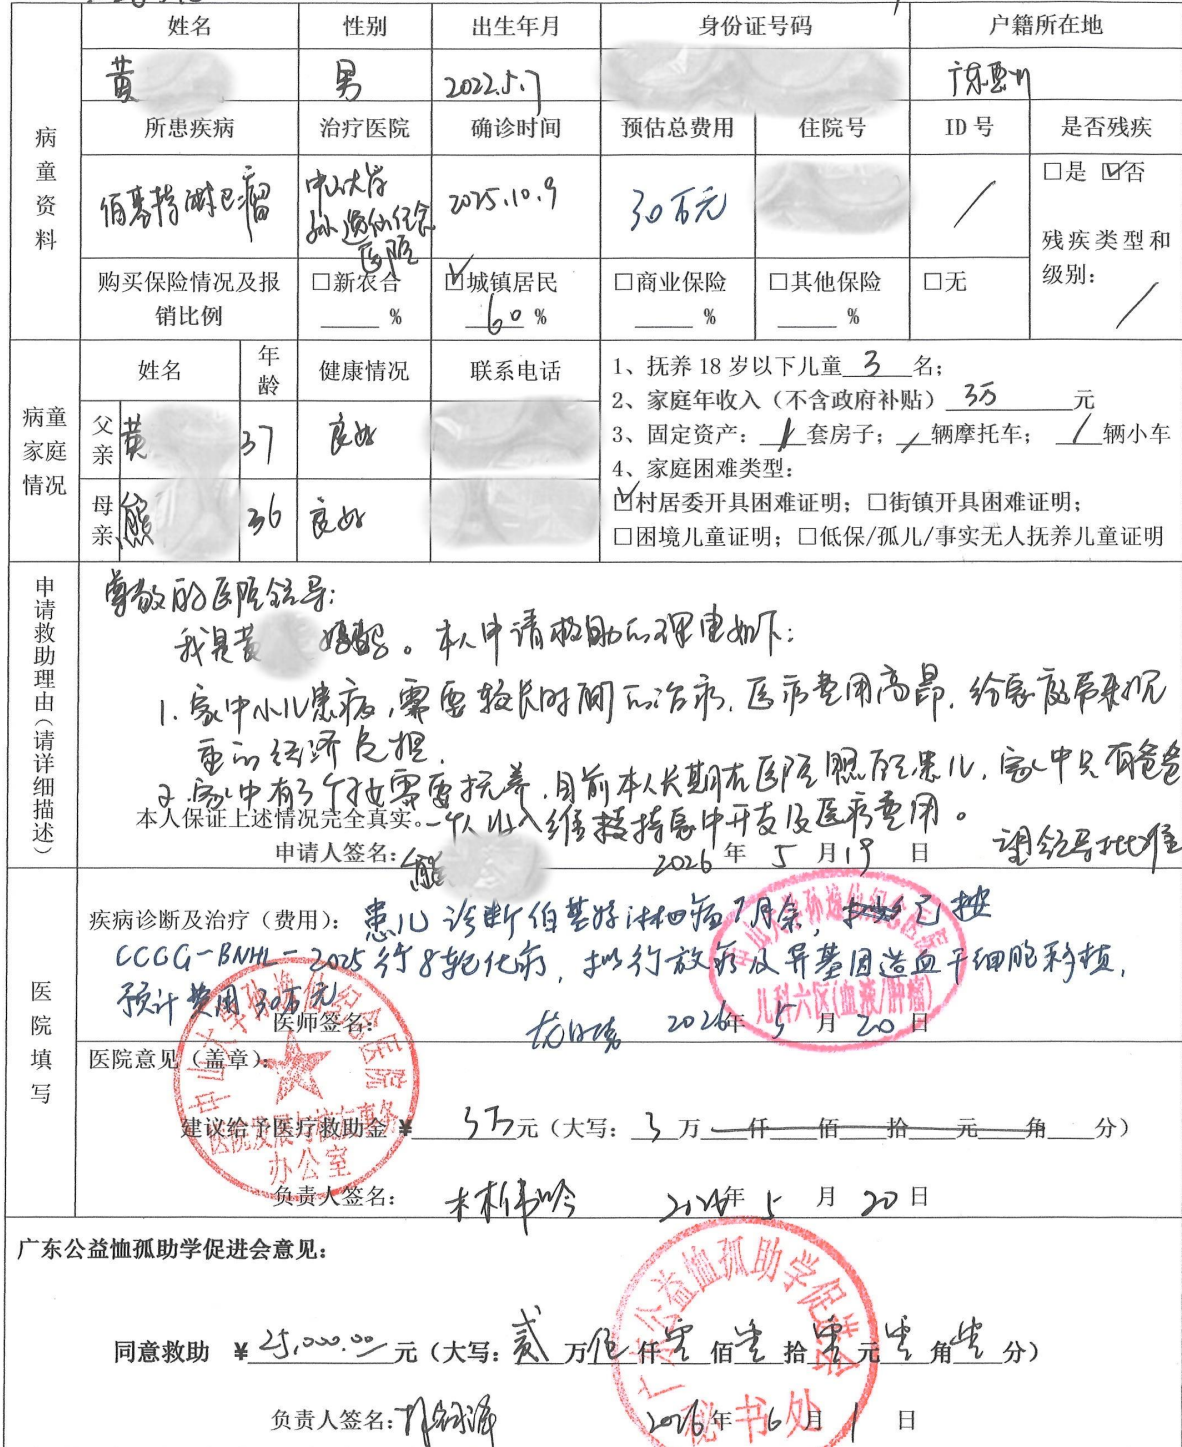 姓名 性别 出生年月 身份证号码 户籍所在地
黄 男 2022.5.7 广东惠州
病童资料
所患疾病 治疗医院 确诊时间 预估总费用 住院号 ID 号 是否残疾
伯基特淋巴瘤 中山大学孙逸仙纪念医院 2025.10.9 30万元 / □是 ☑否
残疾类型和级别：
/
购买保险情况及报销比例 □新农合 ____% ☑城镇居民 60% □商业保险 ____% □其他保险 ____% □无
病童家庭情况
姓名 年龄 健康情况 联系电话
父亲 黄 37 良好
母亲 熊 36 良好
1、抚养 18 岁以下儿童 3 名；
2、家庭年收入（不含政府补贴） 3万 元
3、固定资产： / 套房子； / 辆摩托车； / 辆小车
4、家庭困难类型：
☑村居委开具困难证明；□街镇开具困难证明；
□困境儿童证明；□低保/孤儿/事实无人抚养儿童证明
申请救助理由（请详细描述）
尊敬的医院领导：
我是黄 妈妈。本人申请救助的理由如下：
1. 家中小儿患病，需要较长时间的治疗，医疗费用高昂，给家庭带来沉
重的经济负担.
2. 家中有3个孩 需要抚养，目前本人长期在医院照顾患儿，家中只有爸爸
一个人收入维 持家中开支及医疗费用。
望领导批准
本人保证上述情况完全真实。
申请人签名： 熊 2026 年 5 月 19 日
医院填写
疾病诊断及治疗（费用）： 患儿诊断伯基特淋巴瘤7月余， 已按
CCCG-BNHL-2025行8轮化疗，拟行放疗及异基因造血干细胞移植，
预计费用30万元
医师签名： 2026年 5 月 20 日
中山大学孙逸仙纪念医院
儿科六区(血液/肿瘤)
医院意见（盖章）：
中山大学孙逸仙纪念医院
医院发展与校友事务
办公室
建议给予医疗救助金 ¥ 3万 元（大写： 3 万 仟 佰 拾 元 角 分）
负责人签名： 2026年 5 月 20 日
广东公益恤孤助学促进会意见：
同意救助 ¥ 25,000.00 元（大写： 贰 万 伍 仟 零 佰 零 拾 零 元 零 角 零 分）
负责人签名： 2026年 6 月 1 日
广东公益恤孤助学促进会
秘书处